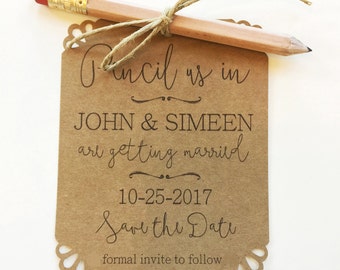 Pencil us in
JOHN & SIMEEN
are getting married
10-25-2017
Save the Date
formal invite to follow